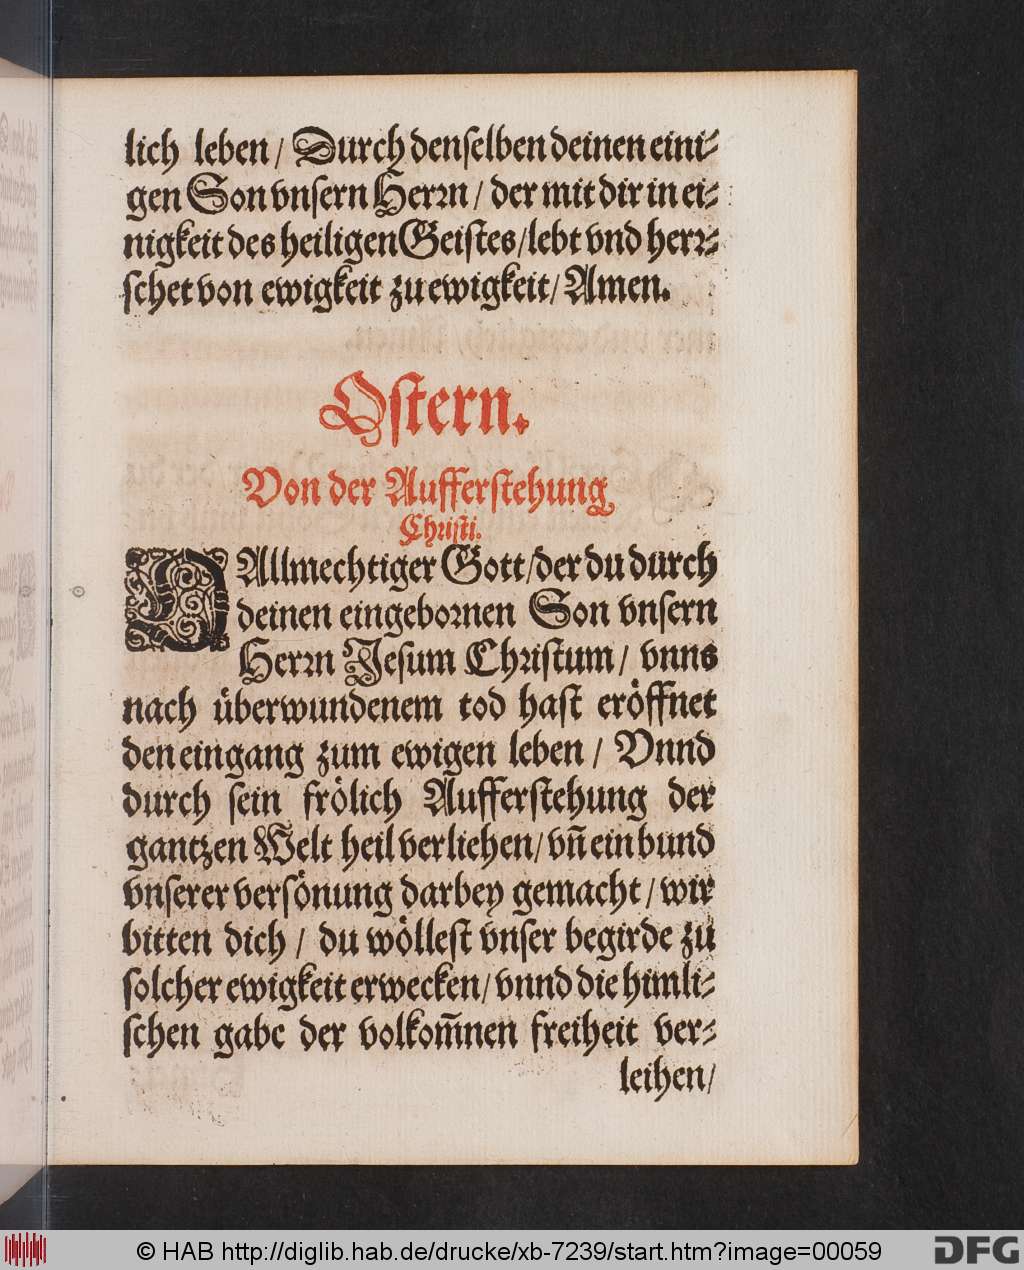 lich leben / Durch denselben deinen eini⸗
gen Son vnsern Herrn / der mit dir in ei⸗
nigkeit des heiligen Geistes / lebt vnd herr⸗
schet von ewigkeit zu ewigkeit / Amen.
Ostern.
Von der Aufferstehung
Christi.
O Allmechtiger Gott / der du durch
deinen eingebornen Son vnsern
Herrn Jesum Christum / vnns
nach überwundenem tod hast eröffnet
den eingang zum ewigen leben / Vnnd
durch sein frölich Aufferstehung der
gantzen Welt heil verliehen / vñ ein bund
vnserer versönung darbey gemacht / wir
bitten dich / du wöllest vnser begirde zu
solcher ewigkeit erwecken / vnnd die himli⸗
schen gabe der volkom̃nen freiheit ver⸗
leihen /
© HAB http://diglib.hab.de/drucke/xb-7239/start.htm?image=00059
DFG